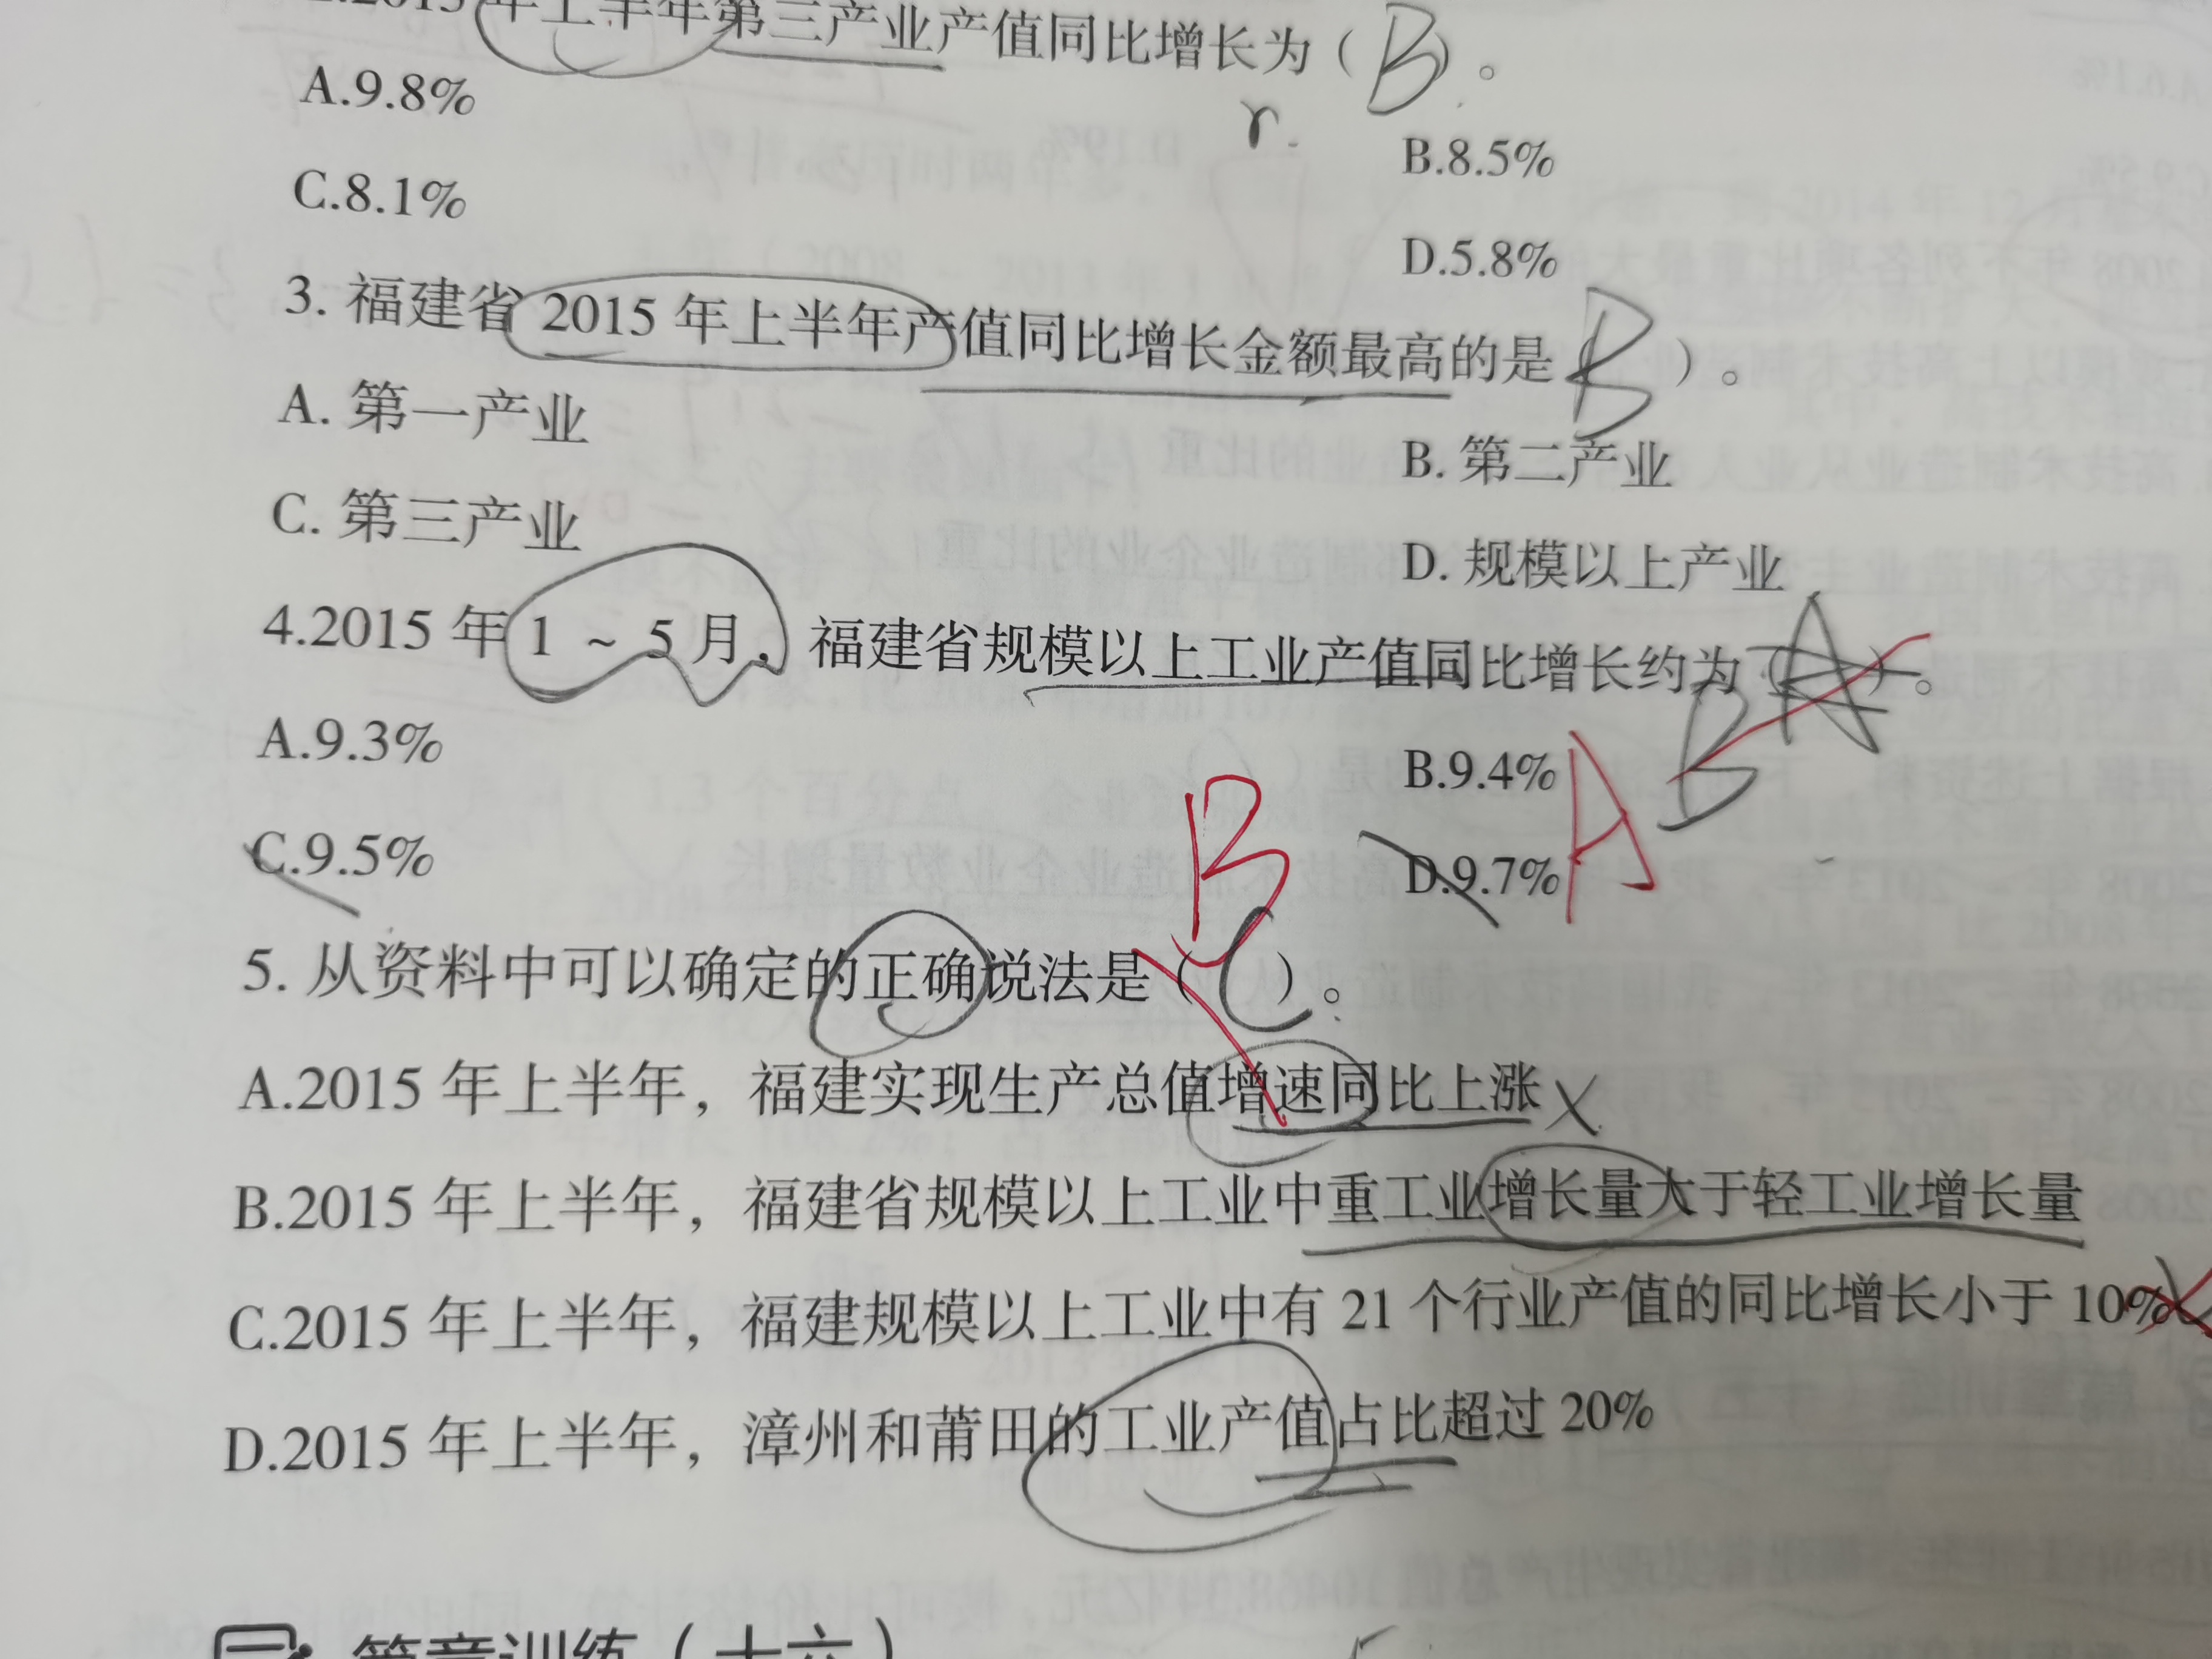 2.2015 年上半年第三产业产值同比增长为（ B ）。
A.9.8%
r.
B.8.5%
C.8.1%
D.5.8%
3. 福建省 2015 年上半年产值同比增长金额最高的是（ B ）。
A. 第一产业
B. 第二产业
C. 第三产业
D. 规模以上产业
4.2015 年 1 ~ 5 月，福建省规模以上工业产值同比增长约为（ A ）。
B
A.9.3%
B.9.4%
A
C.9.5%
D.9.7%
B
5. 从资料中可以确定的正确说法是（ C ）。
A.2015 年上半年，福建实现生产总值增速同比上涨 X
B.2015 年上半年，福建省规模以上工业中重工业增长量大于轻工业增长量
C.2015 年上半年，福建规模以上工业中有 21 个行业产值的同比增长小于 10%
D.2015 年上半年，漳州和莆田的工业产值占比超过 20%
篇章训练（十六）